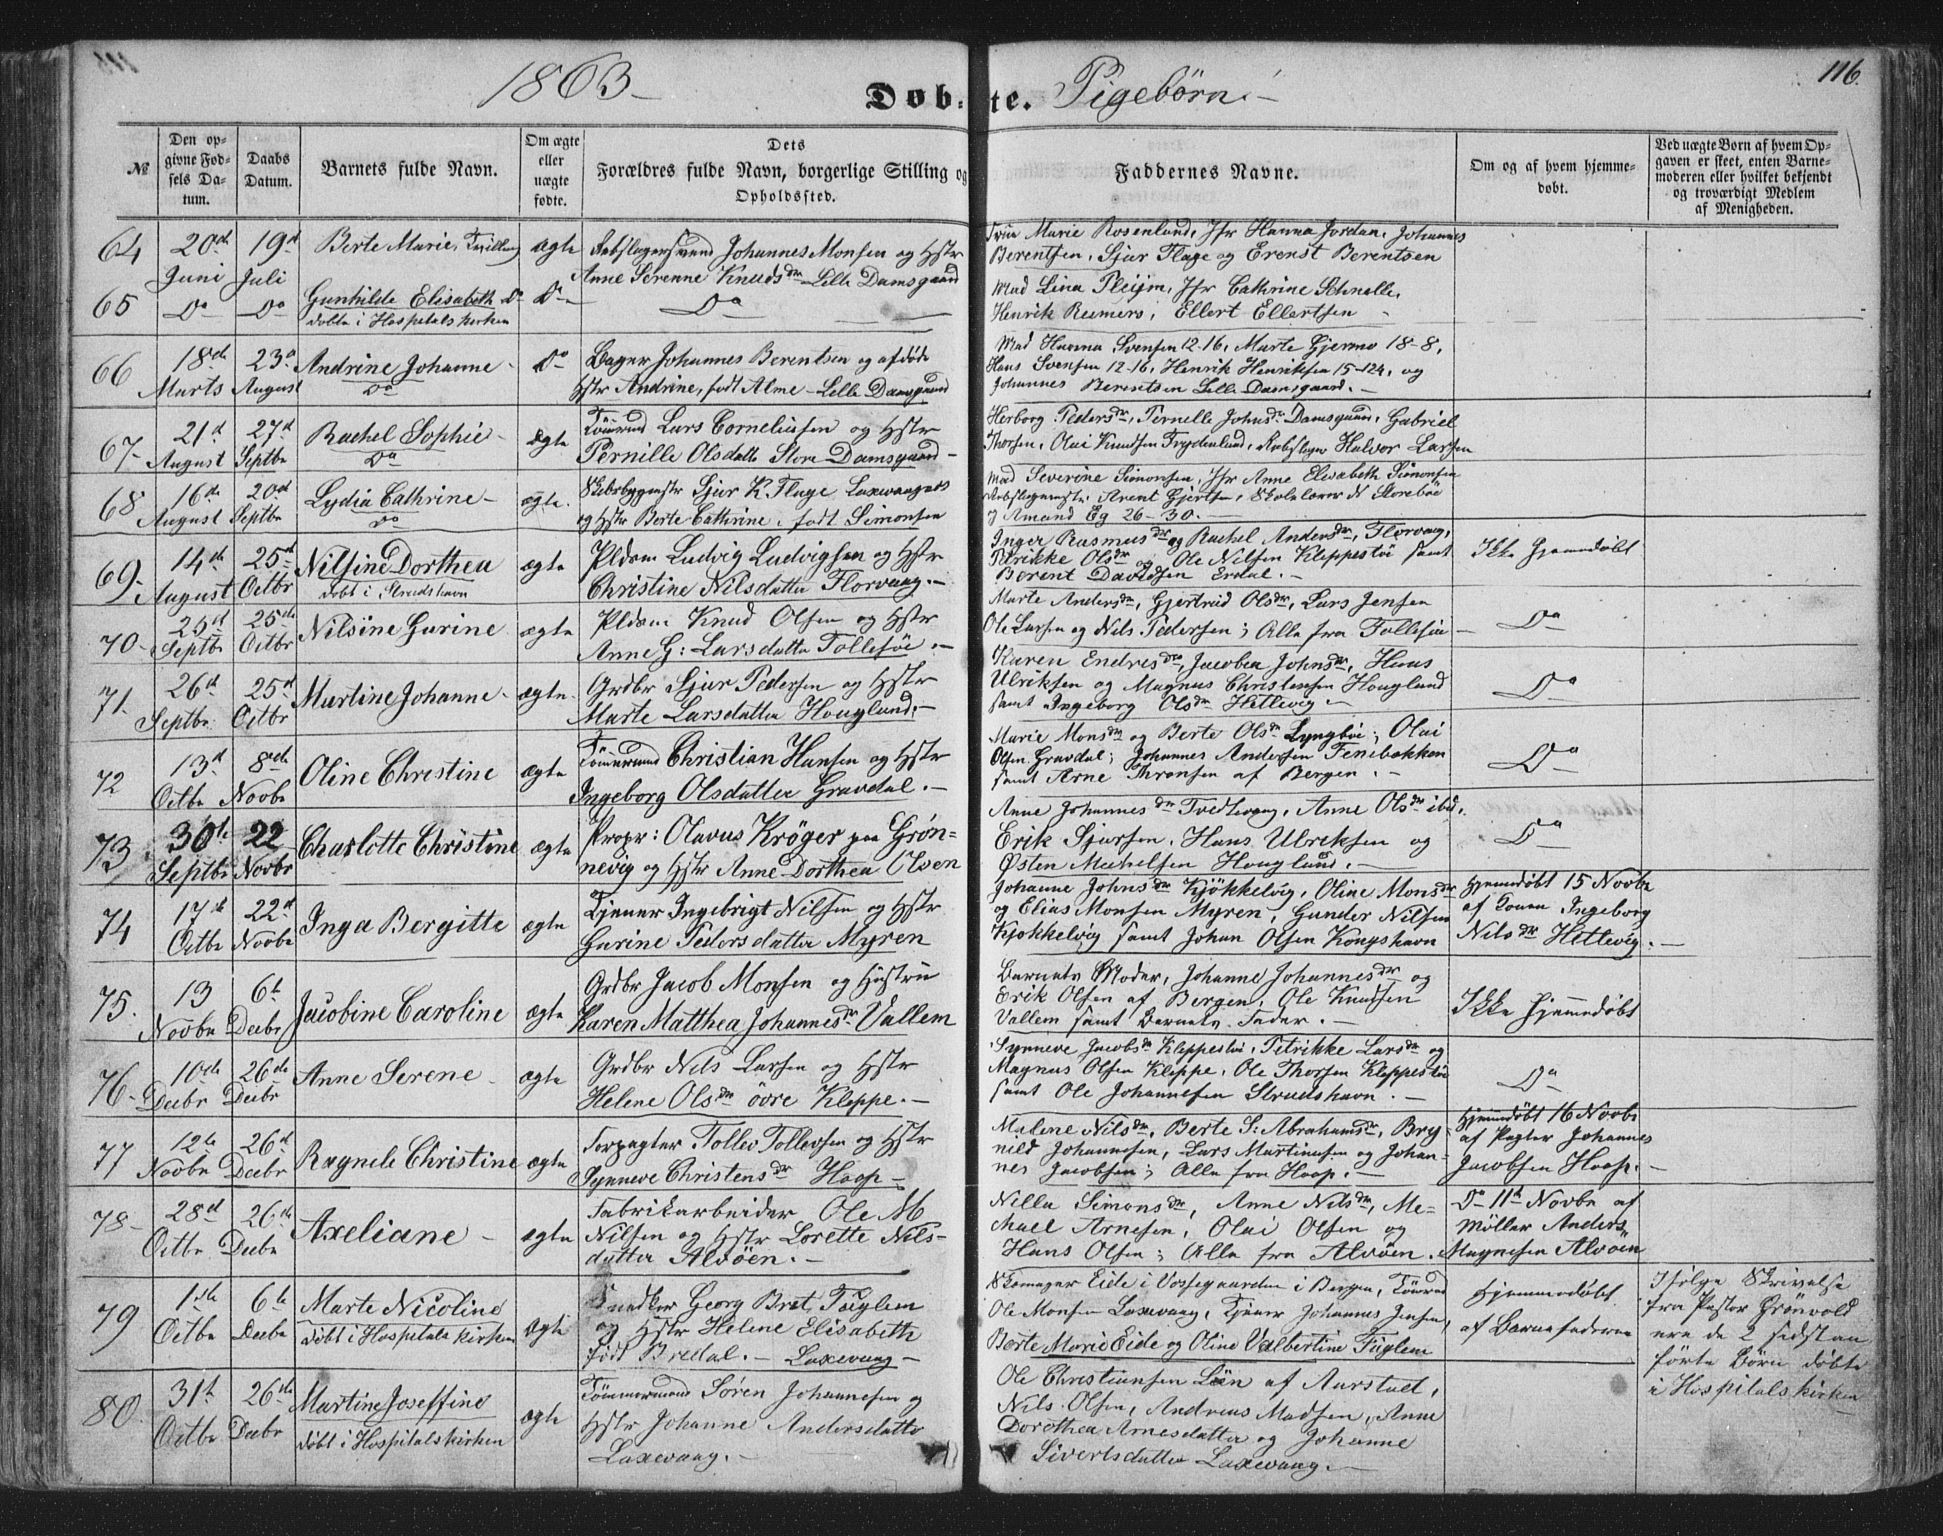 116.
1863 – Døbte. Pigebørn –
№ | Den opgivne Fødsels Datum. | Daabs Datum. | Barnets fulde Navn. | Om ægte eller uægte fødte. | Dets Forældres fulde Navn, borgerlige Stilling og Opholdssted. | Faddernes Navne. | Om og af hvem hjemmedøbt. | Ved uægte Børn af hvem Opgaven er skeet, enten Barnemoderen eller hvilket bekjendt og troværdigt Medlem af Menigheden.
64 20de Juni 19d Juli Berte Marie, Tvilling ægte
Johannes Monsen og Hstr
Anne Serenne Knudsdr Lille Damsgaard
Marie Rosenlund, Jfr Hanna Jordan, Johannes
Berentsen, Sjur Flage og Erenst Berentsen
65 Do Do Gunhilde Elisabeth Do Do Do
døbte i Hospitalskirken
Mad Lina Jfr Cathrine Schnelle,
Henrik Reimers, Ellert Ellertsen
66 18de Marts 23d August Andrine Johanne – Do
Do
Bager Johannes Berentsen og afdøde
Hstr Andrine, født Alme – Lille Damsgaard
Mad Hanna Svensen 12-16, Marte Gjermo 18-8,
Hans Svensen 12-16, Henrik Henriksen 15-124, og
Johannes Berentsen Lille Damsgaard. –
67 21d August 27d Septbr Rachel Sophie – ægte
Do
Tømmd Lars Corneliussen og Hstr
Pernille Olsdatter Store Damsgaard –
Herborg Pedersdr, Pernille Johnsdr Damsgaard, Gabriel
Thorsen, Olai Knudsen Frydenlund, Rebslager Halvor Larsen
68 16de August 20d Septbr Lydia Cathrine – ægte.
Do
Skibsbygmstr Sjur K. Flage, Laxevaag
og Hstr Berte Cathrine, født Simonsen
Mad Severine Simonsen, Jfr Anne Elisabeth Simonsen
Rebslagermstr. Arent Gjertsen, Skolelærer N Storebøe
og Amand Eg 26-30. –
69 14de August 25d Octbr Nilsine Dorthea ægte
døbt i Strudshavn
Pldsm Ludvig Ludvigsen og Hstr
Christine Nilsdatter Florvaag. –
Inger Rasmusdr og Rachel Andersdr, Florvaag,
Olsdr og Ole Nilsen Kleppestø samt
Berent Davidsen Erdal. –
Ikke Hjemmedøbt
70 25d Septbr 25de Octbr Nilsine Gurine ægte
Pldsm Knud Olsen og Hstr
Anne G: Larsdatter Follesøe –
Marte Andersdr, Gjertrud Olsdr, Lars Jensen
Ole Larsen og Nils Pedersen; Alle fra Follesøe –
Do
71 26d Septbr 25d Octbr Martine Johanne – ægte
Grdbr Sjur Pedersen og Hstr
Marte Larsdatter Houglund. –
Karen Endresdr, Jacobea Johnsdr, Hans
Ulriksen og Magnus Christensen Houglund
samt Ingeborg Olsdr Hetlevig –
Do
72 13d Octbr 8de Novbr Oline Christine ægte
Tømmrmd Christian Hansen og Hstr
Ingeborg Olsdatter Gravdal. –
Marie Monsdr og Berte Olsdr Lyngbøe; Olai
Olsen Gravdal; Johannes Andersen Fenebakken
samt Arne Thronsen af Bergen. –
Do
73 30te Septbr 22 Novbr Charlotte Christine ægte
Propr: Olavus Krøger paa Grøn-
nevig og Hstr Anne Dorthea Olsen
Anne Johannesdr Tvedtevaag, Anne Olsdr ibid.
Erik Sjursen, Hans Ulriksen og
Østen Michelsen Houglund. –
Do
74 17de Octbr 22d Novbr Inga Bergitte ægte
Tjener Ingebrigt Nilsen og Hstr
Gurine Pedersdatter Myren
Johanne Johnsdr Kjøkkelvig, Oline Monsdr
og Elias Monsen Myren, Gunder Nilsen
Kjøkkelvig samt Johan Olsen Kongshavn
Hjemmedøbt 15 Novbr
af Konen Ingeborg
Nilsdr Hetlevig. –
75. 13 Novbr 6te Decbr Jacobine Caroline ægte
Grdbr Jacob Monsen og Hustru
Karen Matthea Johannesdr Vallem
Barnets Moder, Johanne Johannesdr og
Erik Olsen af Bergen, Ole Knudsen
Vallem samt Barnets Fader. –
Ikke Hjemmedøbt
76. 10de Decbr 26de Decbr Anne Serene – ægte
Grdbr Nils Larsen og Hstr
Helene Olsdr øvre Kleppe. –
Synneve Jacobsdr Kleppestø, Petrikke Larsdr og
Magnus Olsen Kleppe, Ole Thorsen Kleppestø
samt Ole Johannesen Strudshavn. –
Do
77 12te Novbr 26d Decbr Ragnele Christine ægte
Forpagter Tollev Tollevsen og Hstr
Synneve Christensdr Haap –
Malene Nilsdr, Berte S: Abrahamsdr, Bry-
nild Johannesen, Lars Martinusen og Johan-
nes Jacobsen; Alle fra Haap. –
Hjemmedøbt 16 Novbr
af Pagter Johannes
Jacobsen Haap. –
78 – 28d Octbr 26de Decbr Axeliane – ægte
Fabrikarbeider Ole M
Nilsen og Hstr Lorette Nils-
datter Alvøen. –
Nille Simonsdr, Anne Nilsdr, Me-
chael Arnesen, Olai Olsen og
Hans Olsen; Alle fra Alvøen.
Do 11te Novbr af
Møller Anders
Magnesen Alvøen
79 1ste Octbr 6te Decbr Marte Nicoline ægte
døbt i Hospitalskirken
Snedker Georg Bret. Fuglem
og Hstr Helene Elisabeth
født Bredal. – Laxevaag –
Skomager Eide i Vossegaarden i Bergen, Tømmd
Ole Monsen Laxevaag, Tjener Johannes Jensen,
Berte Marie Eide og Oline Valbertine Fuglem
Hjemmedøbt
af Barnefaderen
Ifølge Skrivelse
fra Pastor Grønvold
ere de 2 sidstan
førte Børn døbte
i Hospitalskirken
80. 31te Octbr 26de Decbr Martine Joseffine ægte
døbt i Hospitalskirken
Tømmermand Søren Johannesen og
Hstr Johanne Andersdatter
Laxevaag. –
Ole Christiansen Lien af Aurstad,
Nils Olsen, Andreas Madsen, Anne
Dorothea Arnesdatter og Johanne
Sivertsdatter Laxevaag. –